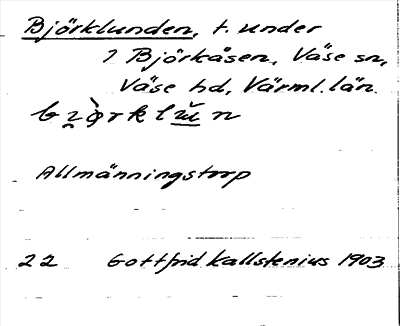 Björklunden, t. under
1 Björkåsen, Väse sn,
Väse hd, Värml. län.
Allmänningstorp
22 Gottfrid Kallstenius 1903